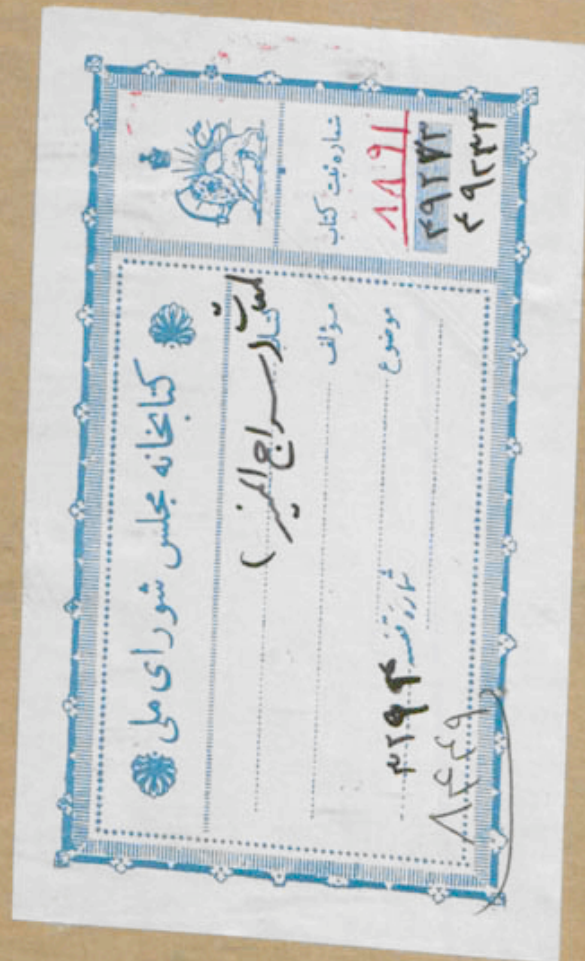 کتابخانه مجلس شورای ملی
کتاب سراج المنیر
مؤلف
موضوع
شماره قفسه ۳۲۹۴
۸۴۴۹
شماره ثبت کتاب
۸۸۹۱
۴۹۲۴۳
۴۹۲۴۳